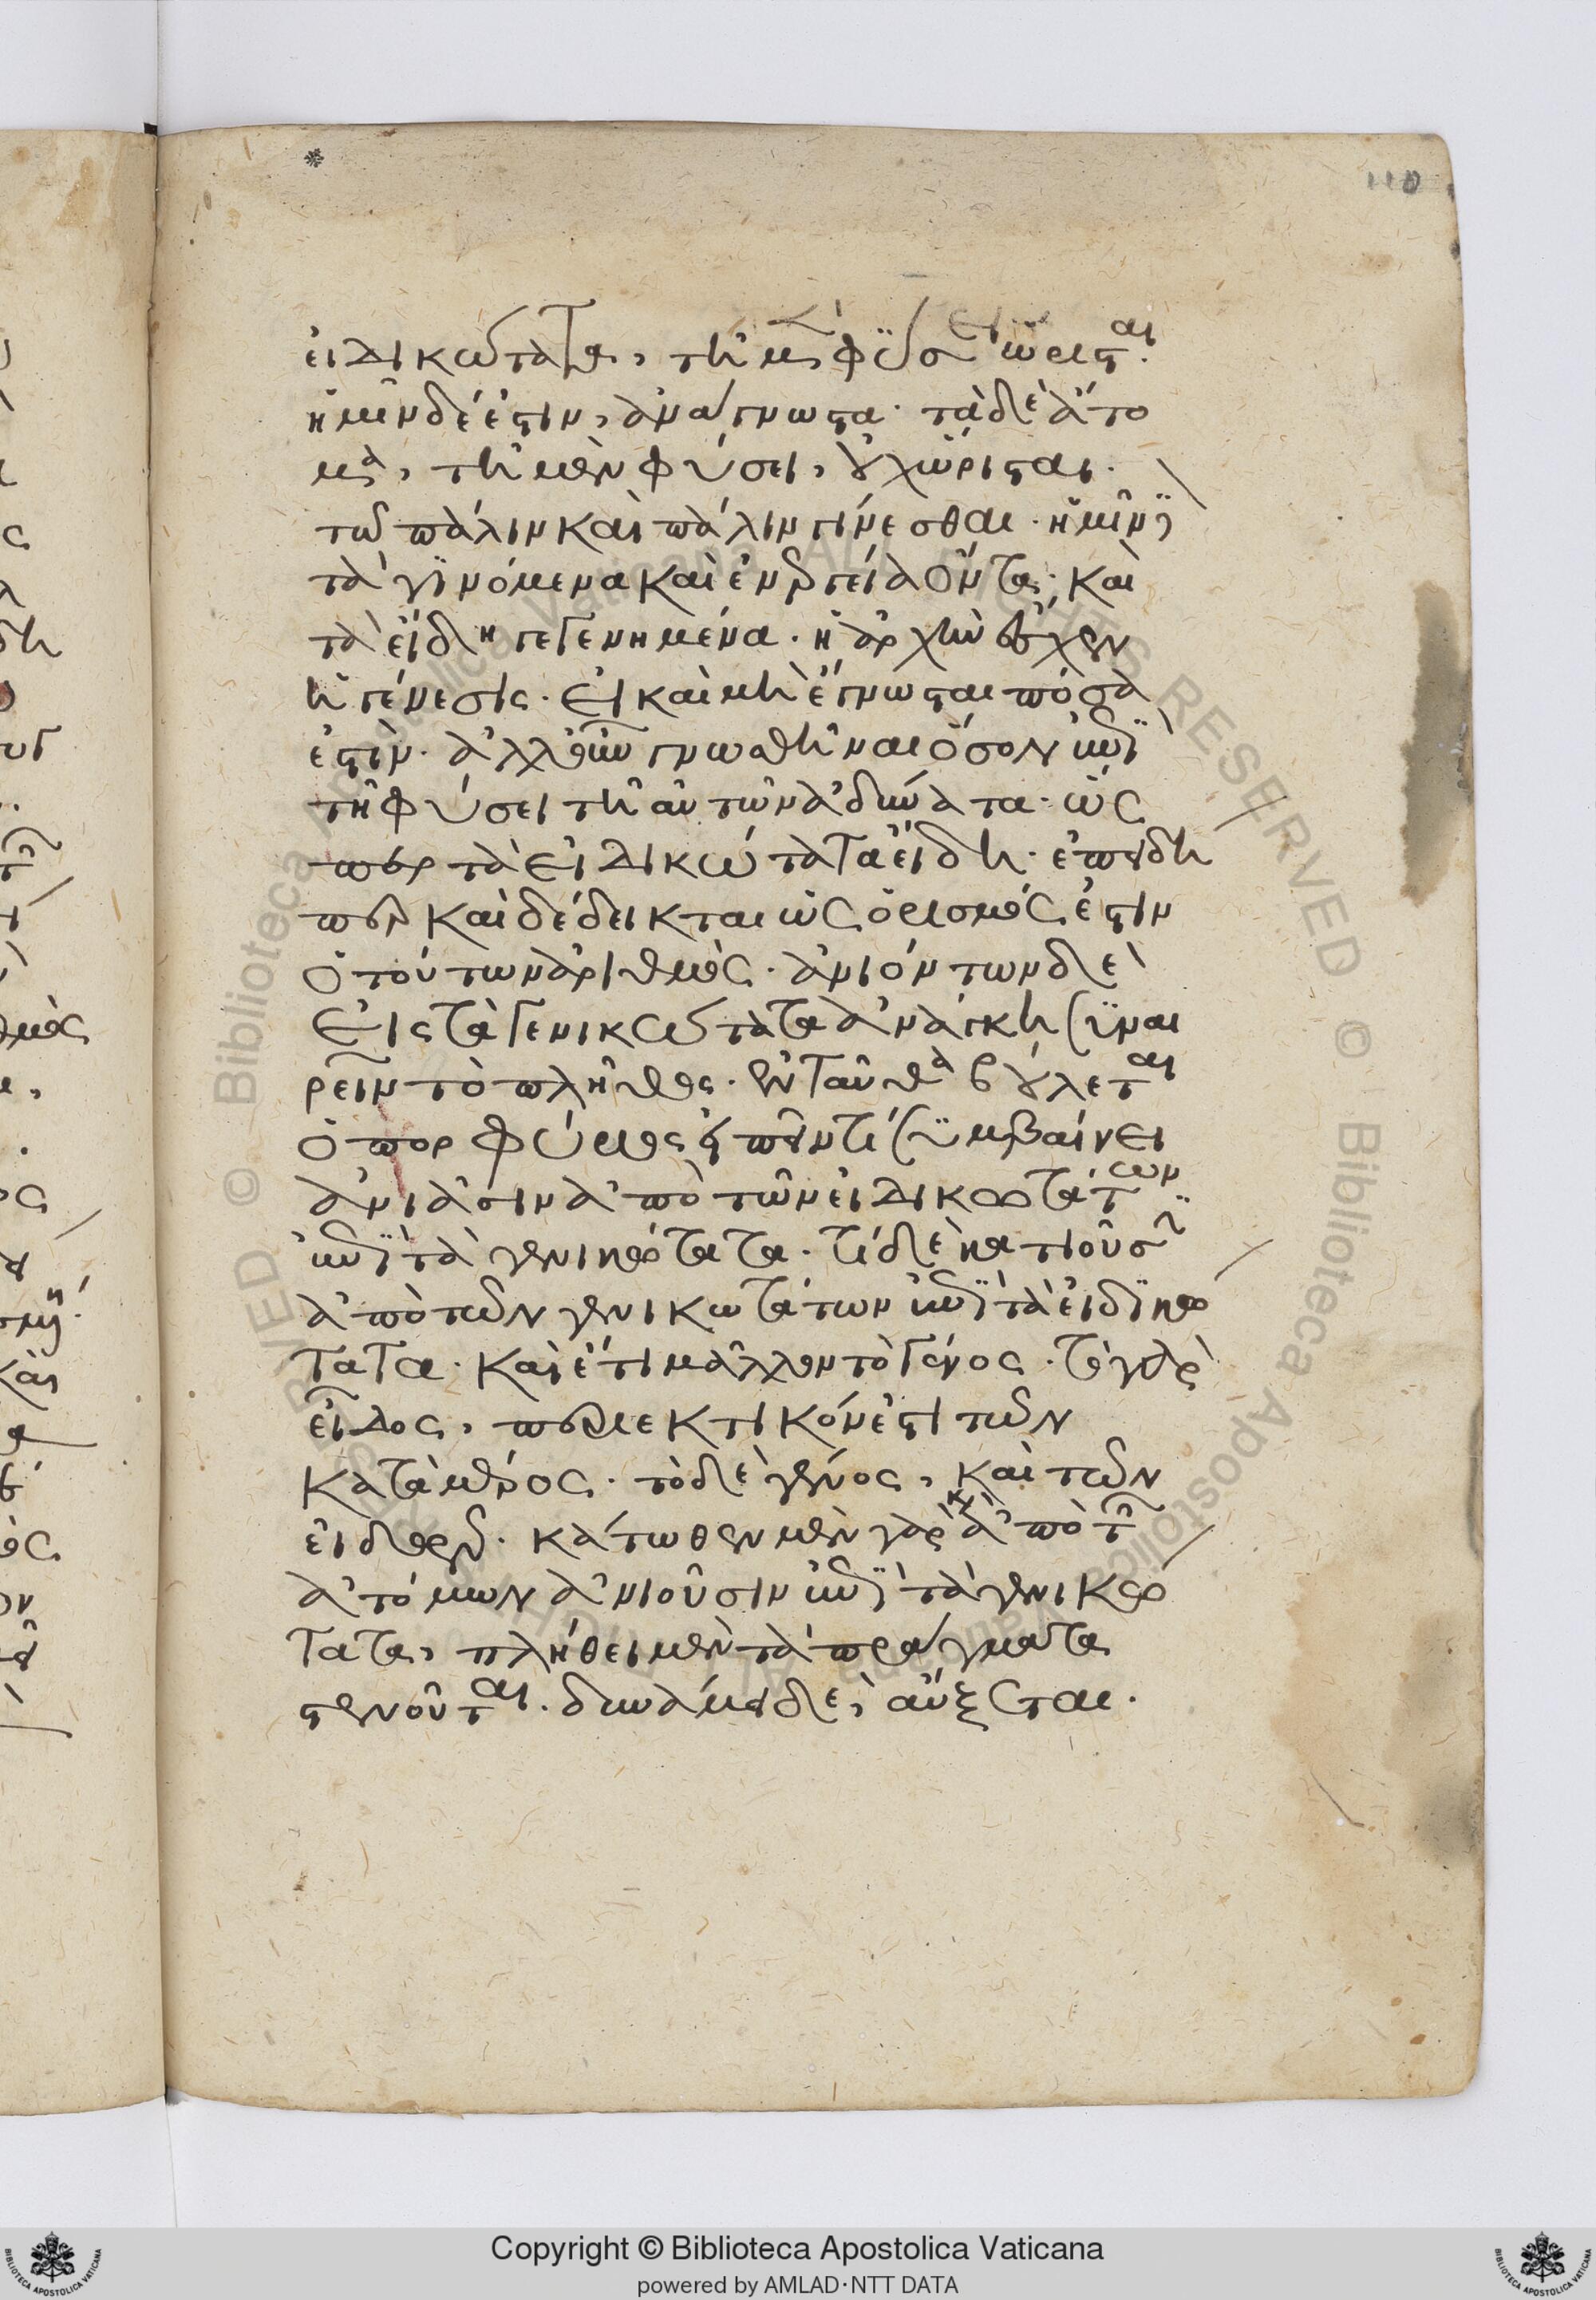 110
εἰδικώτατα, τῆ μὲν φύσει ὥρισται.
ἡμῖν δέ ἐστιν, ἀνάγνωστα· τὰ δὲ ἄτο
μα, τῆ μὲν φύσει, οὐχ ὥρισται.
τῶ πάλιν καὶ πάλιν γίνεσθαι· ἡμῖν
τὰ γινόμενα καὶ ἐνεργείᾳ ὄντα· καὶ
τὰ εἴδη γεγενημένα· ἢ ἀρχὴν ἔσχεν
ἡ γένεσις· εἰ καὶ μὴ ἔγνωσται πόσα
ἐστίν· ἀλλ' οὖν γνωσθῆναι ὅσον ἐπὶ
τῆ φύσει τῆ αὐτῶν ἀδύνατα· ὥς
περ τὰ εἰδικώτατα εἴδη· ἐπειδὴ
περ καὶ δέδεικται ὡς ὁρισμός ἐστιν
ὁ τούτων ἀριθμός· ἀνιόντων δὲ
εἰς τὰ γενικώτατα ἀνάγκη συναι
ρεῖν τὸ πλῆθος· ἐνταῦθα βούλεται
ὁ πορφύριος εἰπεῖν τί συμβαίνει
ἀνιᾶσιν ἀπὸ τῶν εἰδικωτάτων
ἐπὶ τὰ γενικώτατα· τί δὲ κατιοῦσιν
ἀπὸ τῶν γενικωτάτων ἐπὶ τὰ εἰδικώ
τατα· καὶ ἔτι μᾶλλον τὸ γένος· τὸ γὰρ
εἶδος, περιεκτικόν ἐστι τῶν
κατὰ μέρος· τὸ δὲ γένος, καὶ τῶν
εἰδῶν· κάτωθεν μὲν γὰρ ἀπὸ τῶν
ἀτόμων ἀνιοῦσιν ἐπὶ τὰ γενικώ
τατα, πλήθει μὲν τὰ πράγματα
στενοῦται· δυνάμει δὲ, αὔξεται.
Copyright © Biblioteca Apostolica Vaticana
powered by AMLAD·NTT DATA